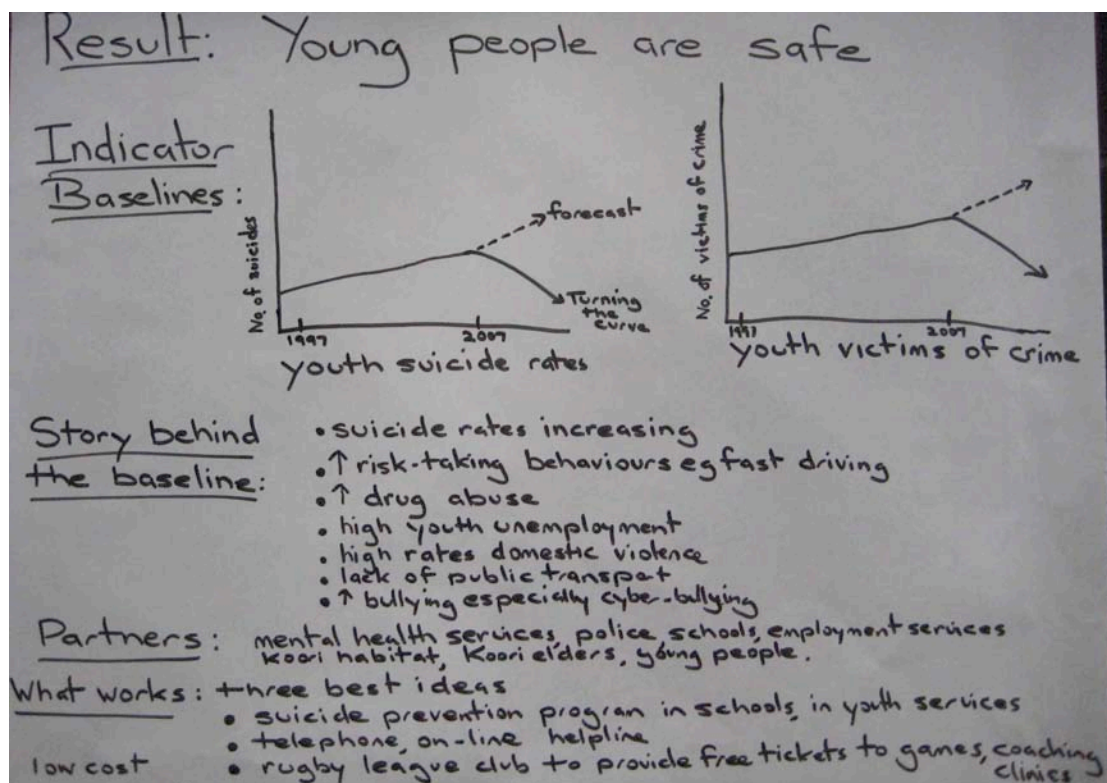 Result: Young people are safe
Indicator
Baselines:
No. of suicides
forecast
Turning
the
curve
1997
2007
youth suicide rates
No. of victims of crime
1997
2007
youth victims of crime
Story behind
the baseline:
• suicide rates increasing
• ↑ risk-taking behaviours eg fast driving
• ↑ drug abuse
• high youth unemployment
• high rates domestic violence
• lack of public transpot
• ↑ bullying especially cyber-bullying
Partners: mental health services, police, schools, employment services
Koori habitat, Koori elders, young people.
What works: three best ideas
• suicide prevention program in schools, in youth services
• telephone, on-line helpline
low cost • rugby league club to provide free tickets to games, coaching
clinics